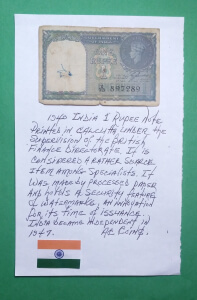 1940 INDIA 1 RUPEE NOTE
PRINTED IN CALCUTTA UNDER THE
SUPERVISION OF THE BRITISH
FINANCE DIRECTORATE. IT IS
CONSIDERED A RATHER SCARCE
ITEM AMONG SPECIALISTS. IT
WAS MADE BY PROCESSED PAPER
AND WITH A SECURITY FEATURE
OF WATERMARKS, AN INNOVATION
FOR ITS TIME OF ISSUANCE.
INDIA BECAME INDEPENDENT IN
1947.